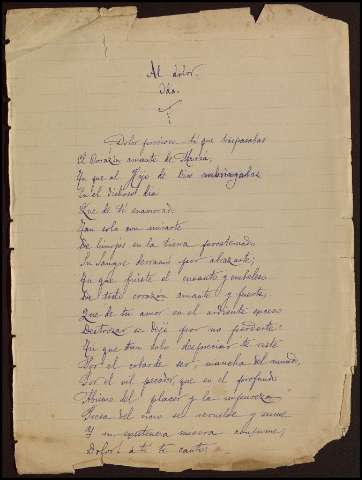 Al dolor.
Oda.
Dolor ti que traspasabas
El Corazón amante de María,
que al Hijo de Dios embriagabas
En el dichoso día
Que de ti enamorado
Tan solo con mirarte
De hinojos en la tierra prosternado
Su Sangre derramó por abrazarte;
que fuiste el encanto y embeleso
De todo corazon amante y fuerte,
Que de tu amor en el ardiente exceso
Destrozar se dejó por no perderte:
que tan solo despreciar te viste
Por el cobarde ser, mancha del mundo,
Por el vil pecador, que en el profundo
Abismo del placer y la impureza
Presa del vicio se revuelve y sume
Y su existencia consume;
Dolor! á tí te canto;